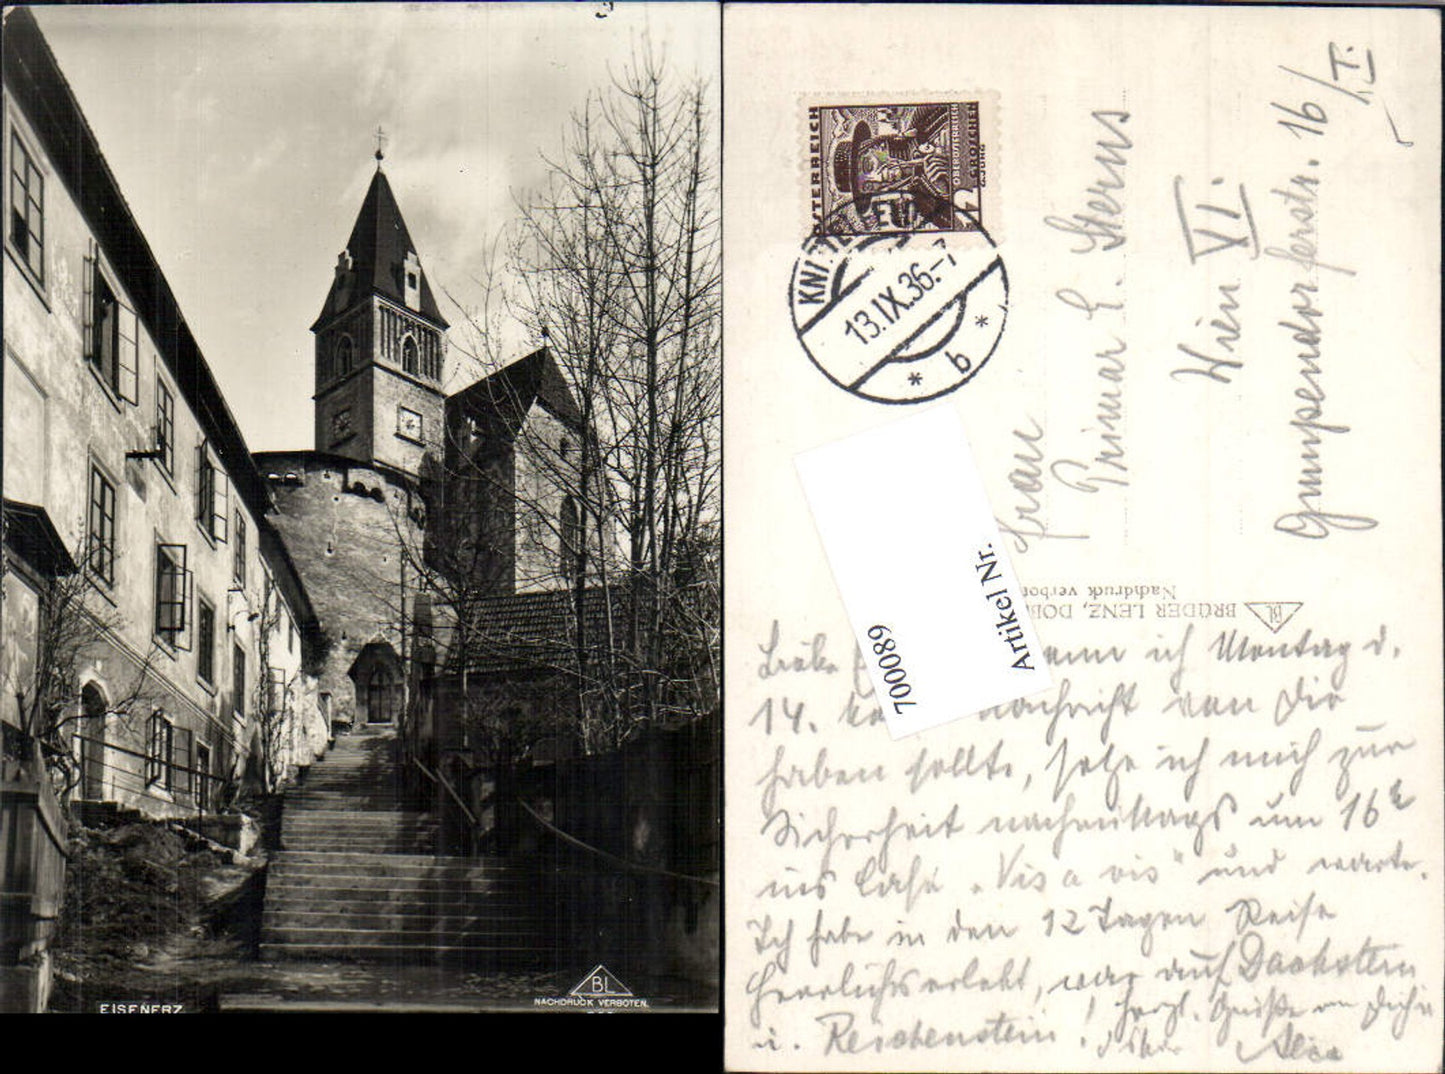 EISENERZ
BL
NACHDRUCK VERBOTEN.
ÖSTERREICH
OBERÖSTERREICH
GROSCHEN
2
KNITTELFELD
13.IX.36.-7
* b *
Frau
Primar E. Sterns
Wien VI.
Gumpendorferstr. 16/I.
Artikel Nr.
700089
BL BRÜDER LENZ, DOB
Nachdruck verbot
Liebe wenn ich Montag d.
14. Nachricht von Dir
haben sollte, setze ich mich zur
Sicherheit nachmittags um 16h
ins Café "Vis a vis" und warte.
Ich habe in den 12 Tagen Reise
Herrlichs erlebt, war auf Dachstein
u. Reichenstein! Herzl. Grüße an Dich u